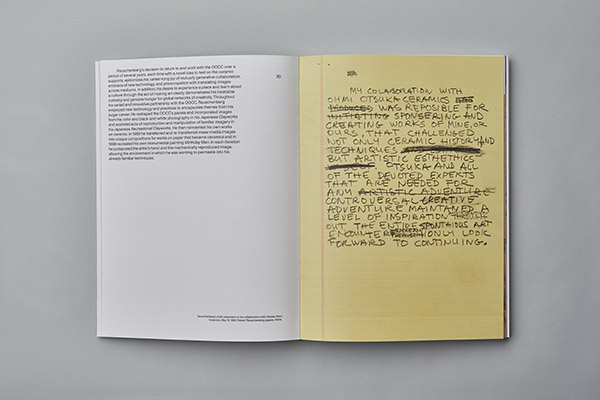 Rauschenberg's decision to return to and work with the OOCC over a
period of several years, each time with a novel idea to test on the ceramic
supports, epitomizes his career-long joy of mutually generative collaboration,
embrace of new technology, and preoccupation with translating images
across mediums. In addition, his desire to experience a place and learn about
a culture through the act of making art clearly demonstrates his insatiable
curiosity and genuine hunger for global networks of creativity. Throughout
his varied and innovative partnership with the OOCC, Rauschenberg
employed new technology and premises to encapsulate themes from his
larger career. He reshaped the OOCC's panels and incorporated images
from his color and black-and-white photography in his Japanese Clayworks
and explored acts of reproduction and manipulation of familiar imagery in
his Japanese Recreational Clayworks. He then reinvented his own works
on ceramic: in 1989 he transferred and re-transferred mass-media images
into unique compositions for works on paper that became ceramics and in
1998 revisited his own monumental painting
In each iteration
he juxtaposed the artist's hand and the mechanically reproduced image,
allowing the environment in which he was working to permeate into his
already familiar techniques.
30
MY COLABORATION WITH
OHMI OTSUKA CERAMICS
WAS REPOSIBLE FOR
INITIATING SPONSERING AND
CREATING WORKS OF MINE, OR
OURS, THAT CHALLENGED
NOT ONLY CERAMIC HISTORY AND
TECHNIQUES
BUT ARTISTIC ESTHETHICS
OTSUKA AND ALL
OF THE DEVOTED EXPERTS
THAT ARE NEEDED FOR
ANY ARTISTIC ADVENTURE
CONTROVERSAL CREATIVE
ADVENTURE MAINTANED A
LEVEL OF INSPIRATION THROUGH
OUT THE ENTIRE SPONTAIOUS ART
ENCOUNTER
I ONLY LOOK
FORWARD TO CONTINUING.